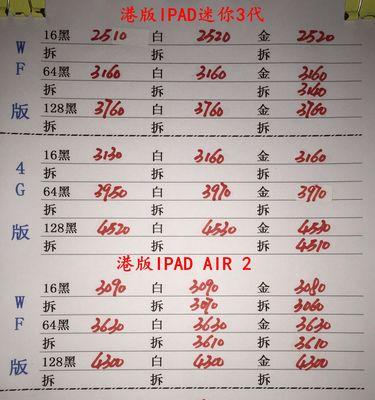 港版IPAD迷你3代
WF版
16黑 2510 白 2520 金 2520
拆 拆 拆
64黑 3160 白 3160 金 3160
拆 拆 拆 3140
128黑 3760 白 3760 金 3760
拆 拆 拆
4G版
16黑 3130 白 3160 金 3160
拆 拆 拆
64黑 3950 白 3970 金 3970
拆 拆 拆
128黑 4520 白 4530 金 4530
拆 拆 拆 4510
港版IPAD AIR 2
WF版
16黑 3090 白 3090 金 3080
拆 拆 3070 拆 3060
64黑 3630 白 3630 金 3630
拆 拆 3610 拆 3610
128黑 4300 白 4300 金 4300
拆 拆 拆